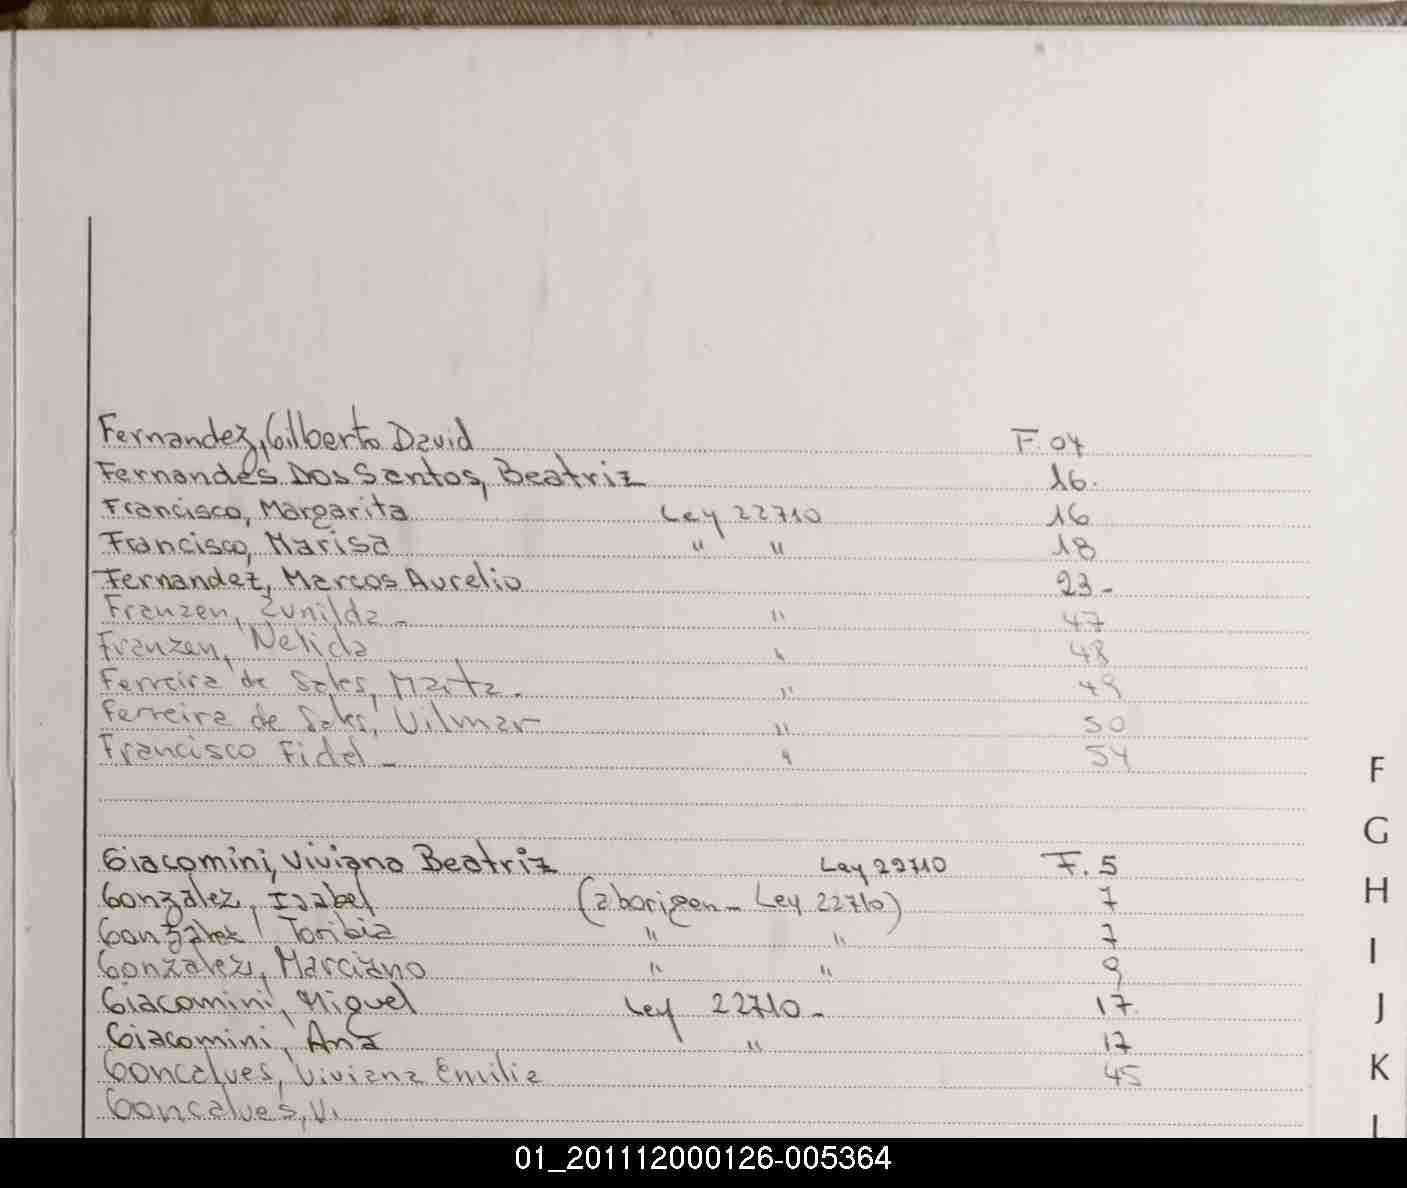 Fernandez, Gilberto David F. 04
Fernandes Dos Santos, Beatriz 16.
Francisco, Margarita Ley 22710 16
Francisco, Marisa " " 18
Fernandez, Marcos Aurelio 23-
Franzen, Zunilda - " 47
Franzen, Nelida " 48
Ferreira de Sales, Marta. " 49
Ferreira de Sales, Vilmar " 50
Francisco Fidel - " 54
F
G
Giacomini, Viviana Beatriz Ley 22710 F. 5
Gonzalez, Isabel (aborigen - Ley 22710) 7
H
Gonzalez, Toribia " " 7
I
Gonzalez, Marciano " " 9
Giacomini, Miguel Ley 22710 - 17.
J
Giacomini, Ana " 17
Goncalves, Viviana Emilia 45
K
Goncalves, Vi
L
01_201112000126-005364